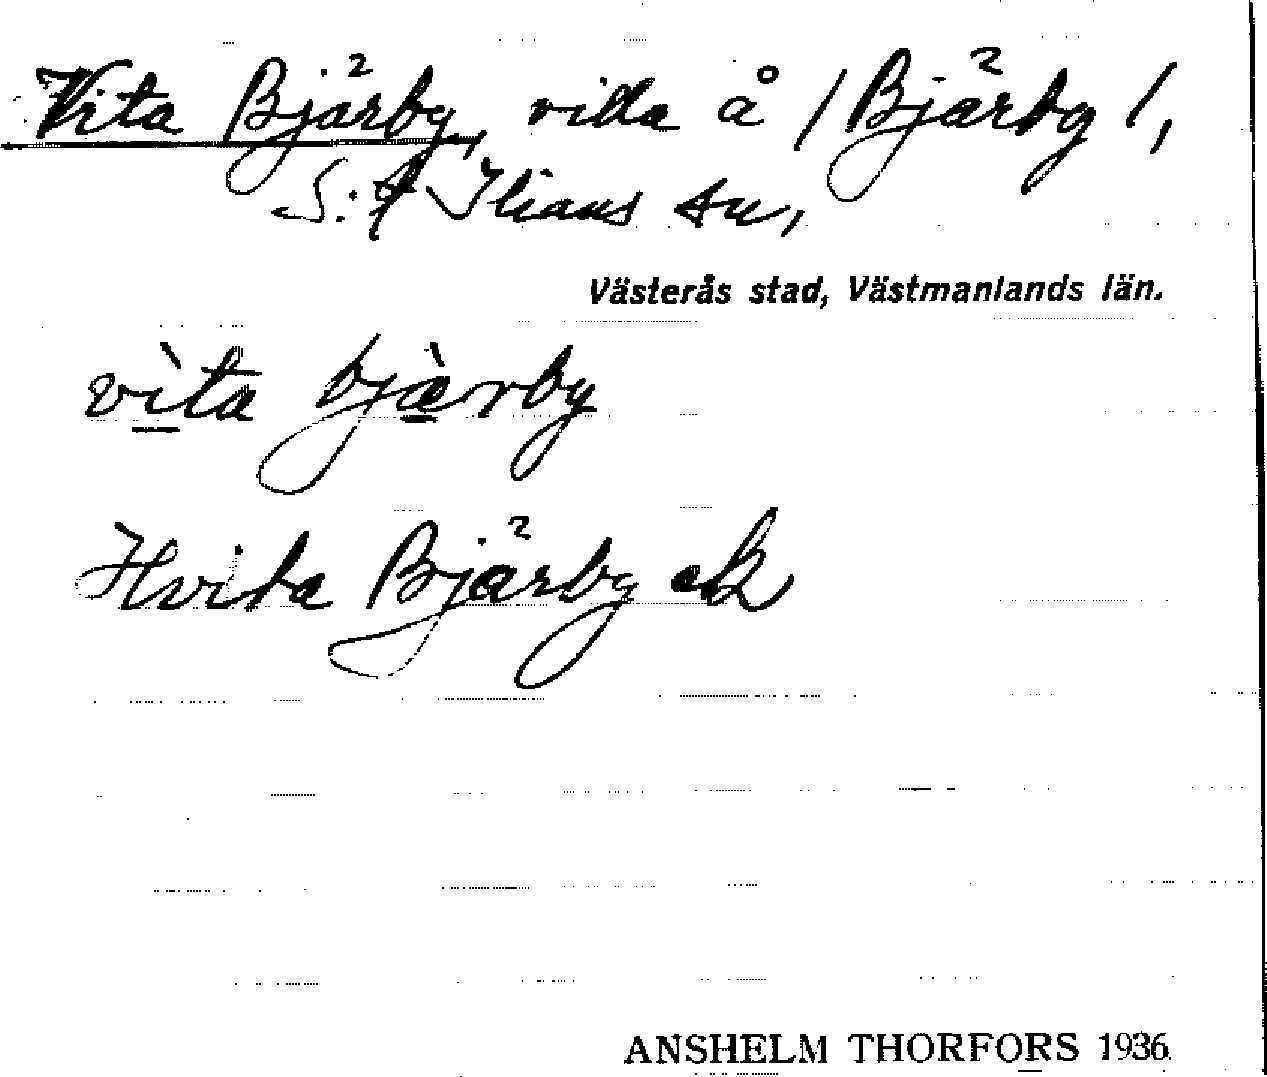 Vita Bjärby, villa å /Bjärby/,
S:t Ilians sn,
Västerås stad, Västmanlands län.
vìta bjàrby
Hvita Bjärby ek
ANSHELM THORFORS 1936